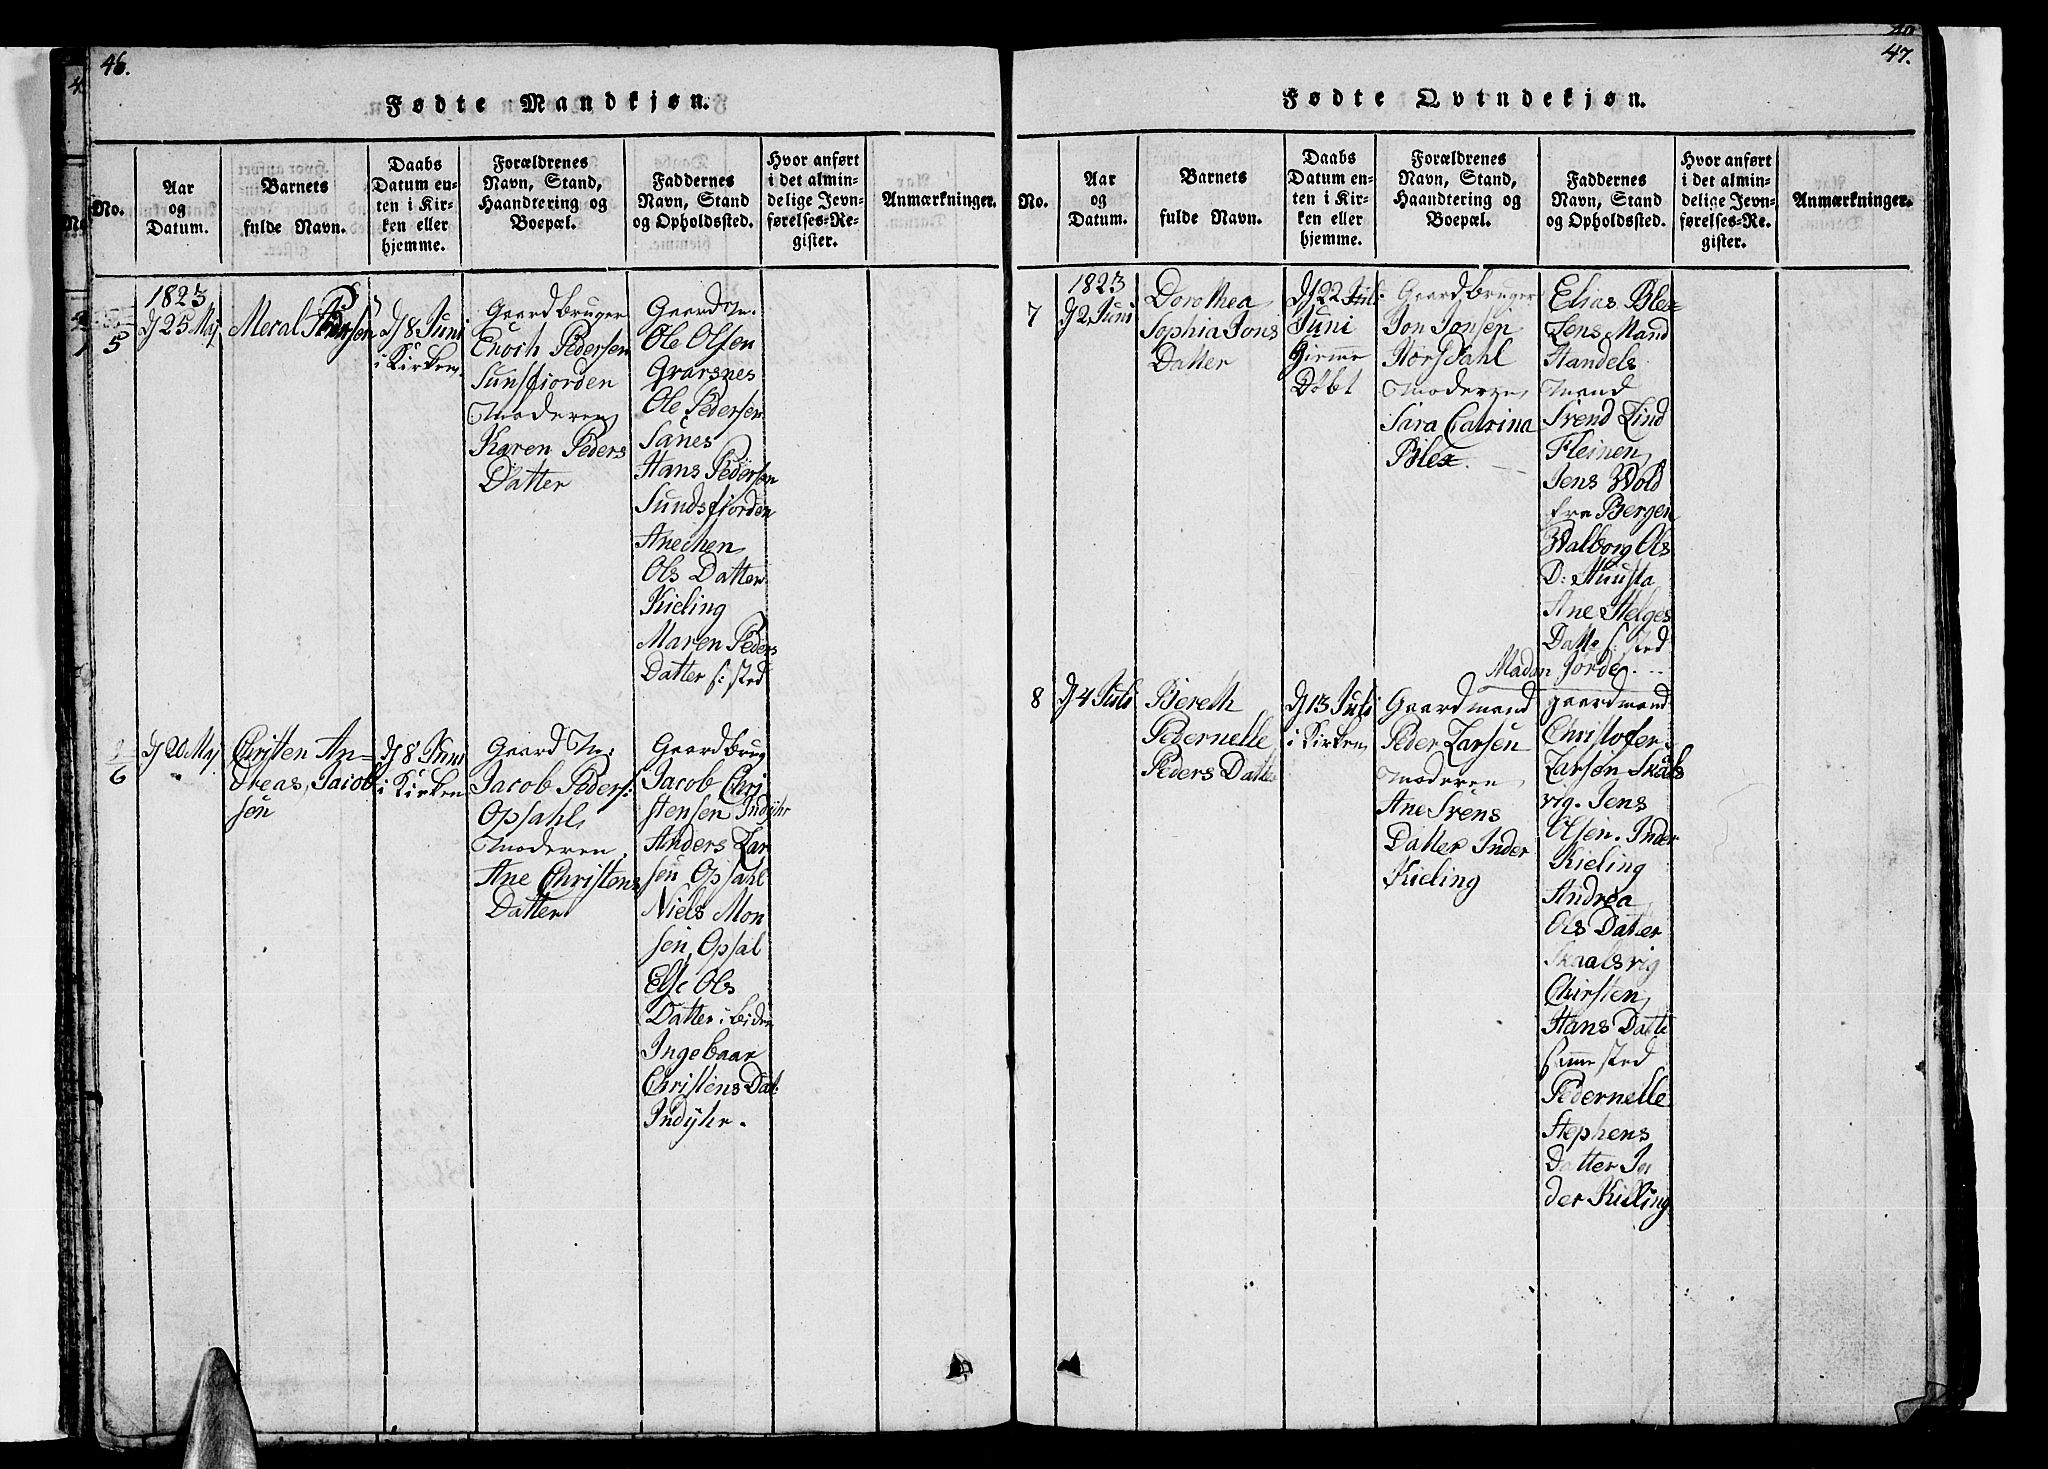 46.
Fødte Mandkjøn.
No.
Aar
og
Datum.
Barnets
fulde Navn.
Daabs
Datum en-
ten i Kir-
ken eller
hjemme.
Forældrenes
Navn, Stand,
Haandtering og
Boepæl.
Faddernes
Navn, Stand
og Opholdssted.
Hvor anført
i det almin-
delige Jevn-
førelses-Re-
gister.
Anmærkninger.
5
1823
d 25 Maj
Meral
d 8 Juni
i Kirken
Gaardbruger
Enoch Pedersen
Sunsfiorden
Moderen
Karen Peders
Datter
Gaard M.
Ole Olsen
Grarsnes
Ole Pedersen
Sanes
Hans Pedersen
Sundsfiorden
Anechen
Ols Datter
Kieling
Maren Peders
Datter s: sted
6
d 20 Maj
Christen An-
dreas, Jacob
sen
d 8 Juni
i Kirken
Gaard M:
Jacob Peders:
Opsahl
Moderen
Ane Christens
Datter
Gaardbrug
Jacob Chri
stensen Indyhr
Anders Lar
sen Opsahl
Niels Mon
sen, Opsal
Else Ols
Datter i
Ingebaar
Christens Dat:
Indyhr.
47.
Fødte Qvindekjøn.
No.
Aar
og
Datum.
Barnets
fulde Navn.
Daabs
Datum en-
ten i Kir-
ken eller
hjemme.
Forældrenes
Navn, Stand,
Haandtering og
Boepæl.
Faddernes
Navn, Stand
og Opholdssted.
Hvor anført
i det almin-
delige Jevn-
førelses-Re-
gister.
Anmærkninger.
7
1823
d 2 Juni
Dorothea
Sophia Jons
Datter
d 22
Juni
Døbt
Gaardbruger
Jon Jonsen
Storsdahl
Moderen
Sara Catrina
Blex.
Elias Blex
Lens Mand
Handels
Mand
Svend Lind
Fleinen
Jens Wold
fra Bergen
Walborg Ols
D:
Ane Helges
Datte s: sted
Madm Jorde
8
d 4 Juli
Bereth
Pedernelle
Peders Datter
d 13 Juli
i Kirken
Gaardmand
Peder Larsen
Moderen
Ane Svens
Datter Inder
Kieling
gaardmand
Christofer
Larsen Skals
vig. Jens
Olsen. Inder
Kieling
Andrea
Ols Datter
Skaalsvig
Chirsten
Hans Datte
samme sted
Pedernelle
Stephens
Datter In
der Kieling